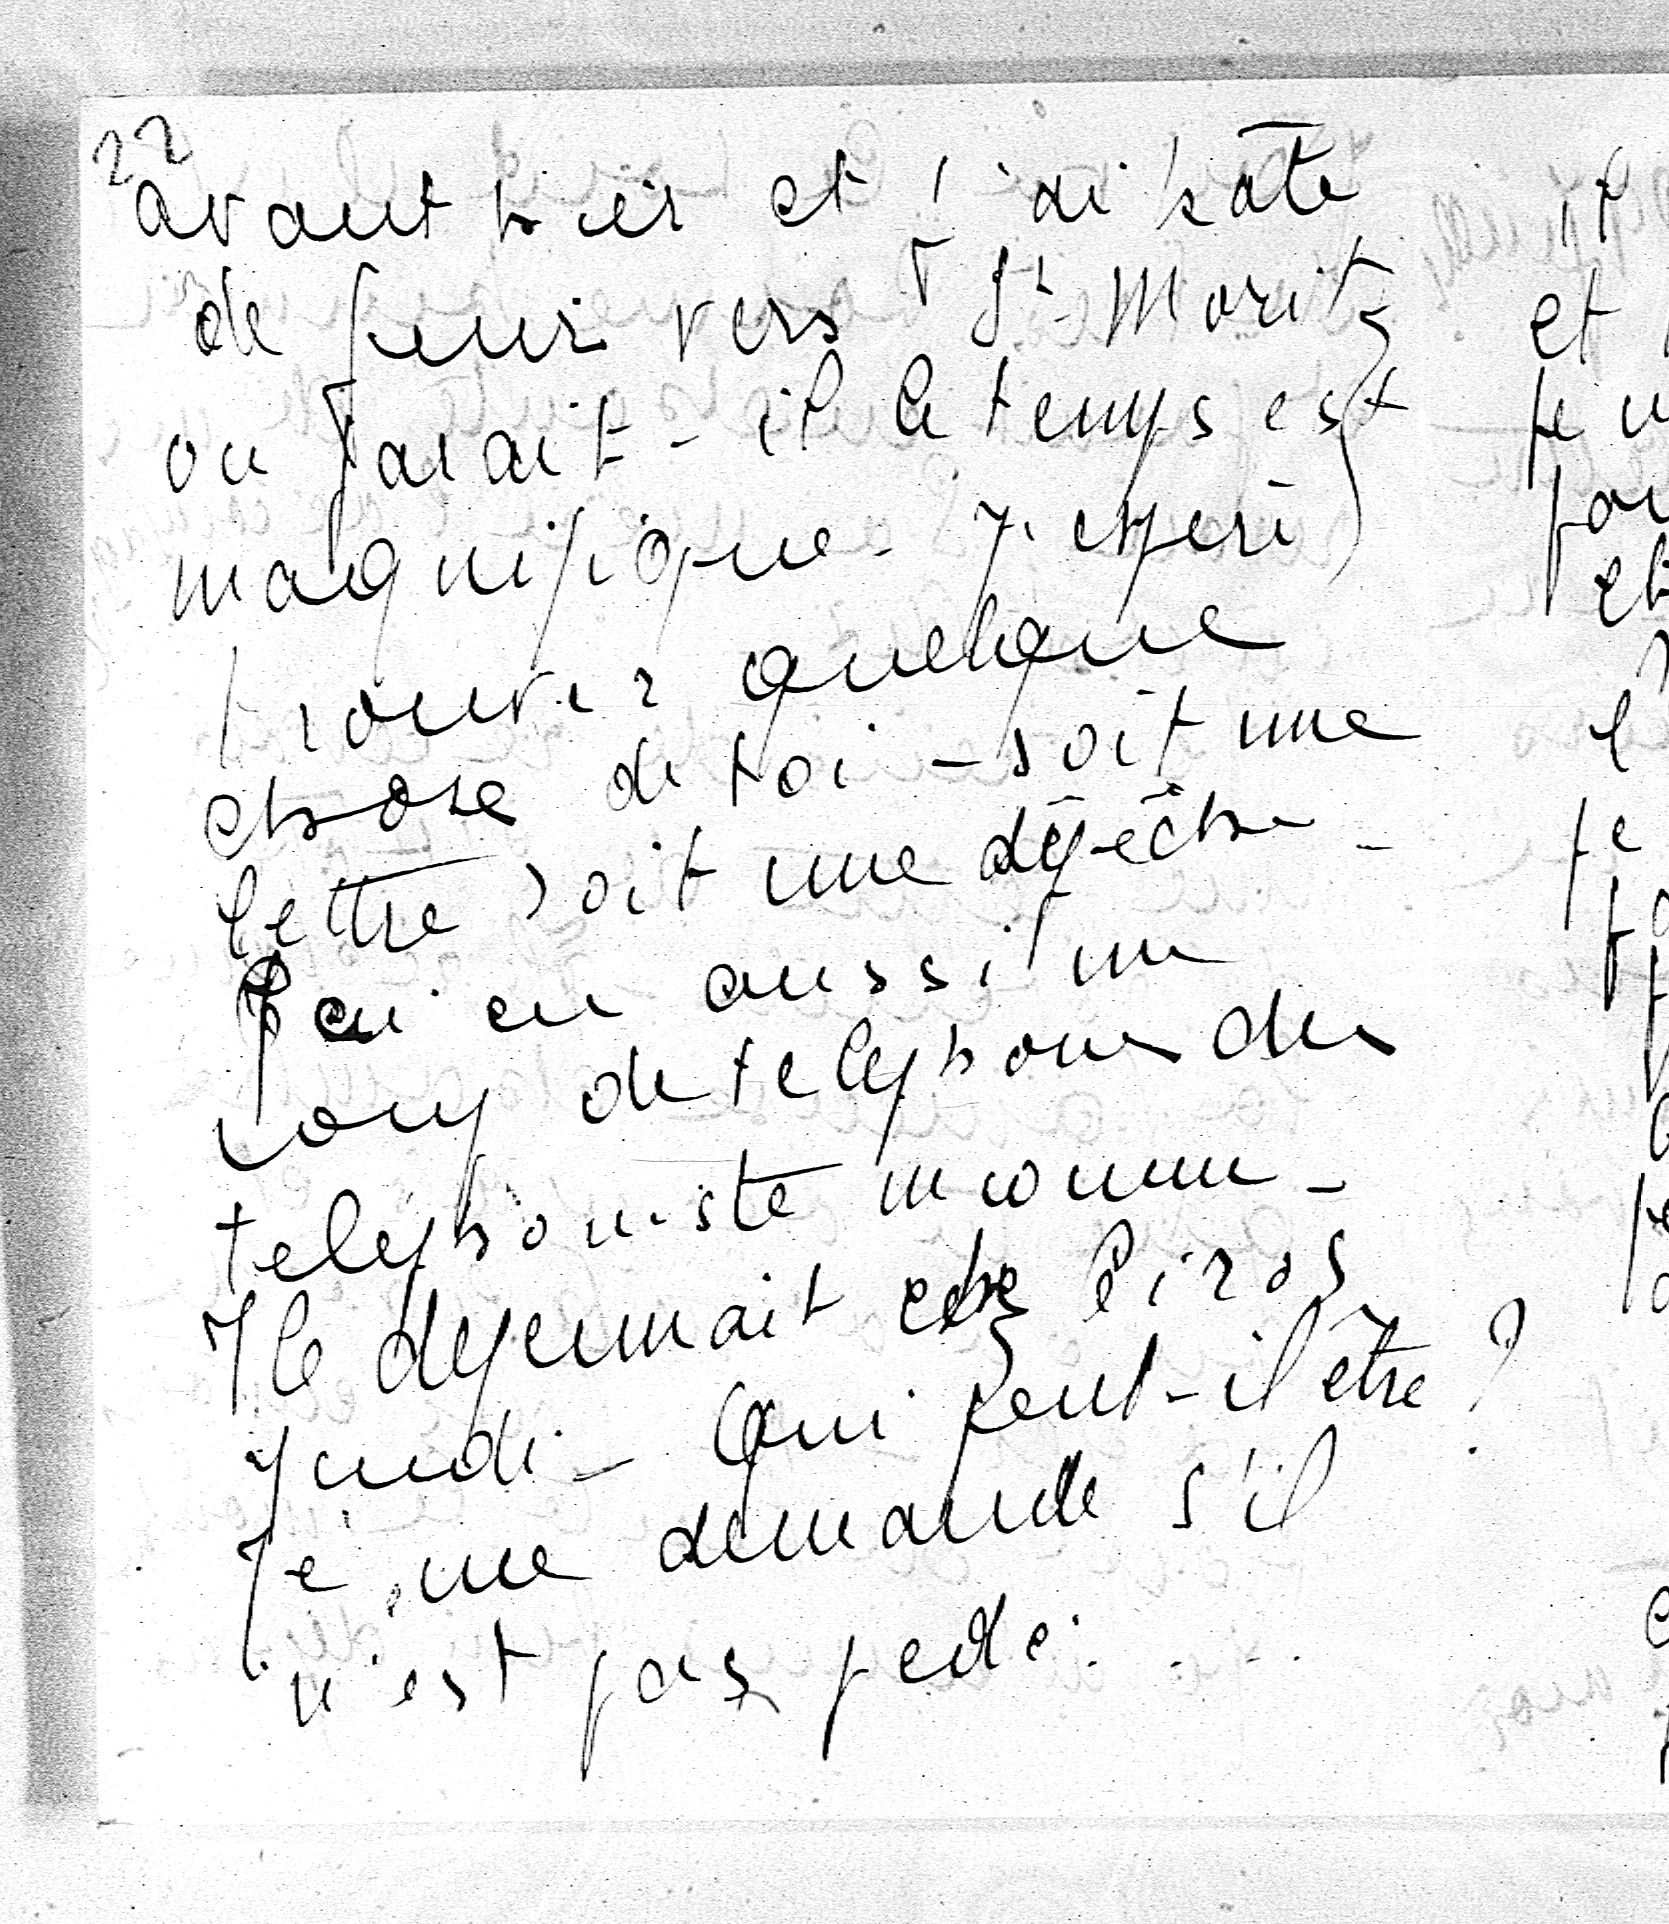 22
avant hier et j'ai hâte
de fuir vers St Moritz
ou parait-il le temps est
magnifique - J'espère
trouver quelque
chose de toi - soit une
lettre soit une dépêche -
J'ai eu aussi un
coup de telephone du
telephoniste inconnu -
Il dejeunait chez Piros
Jeudi - Qui peut-il être ?
Je me demande s'il
n'est pas pede . . . .
il
et
je
et
je